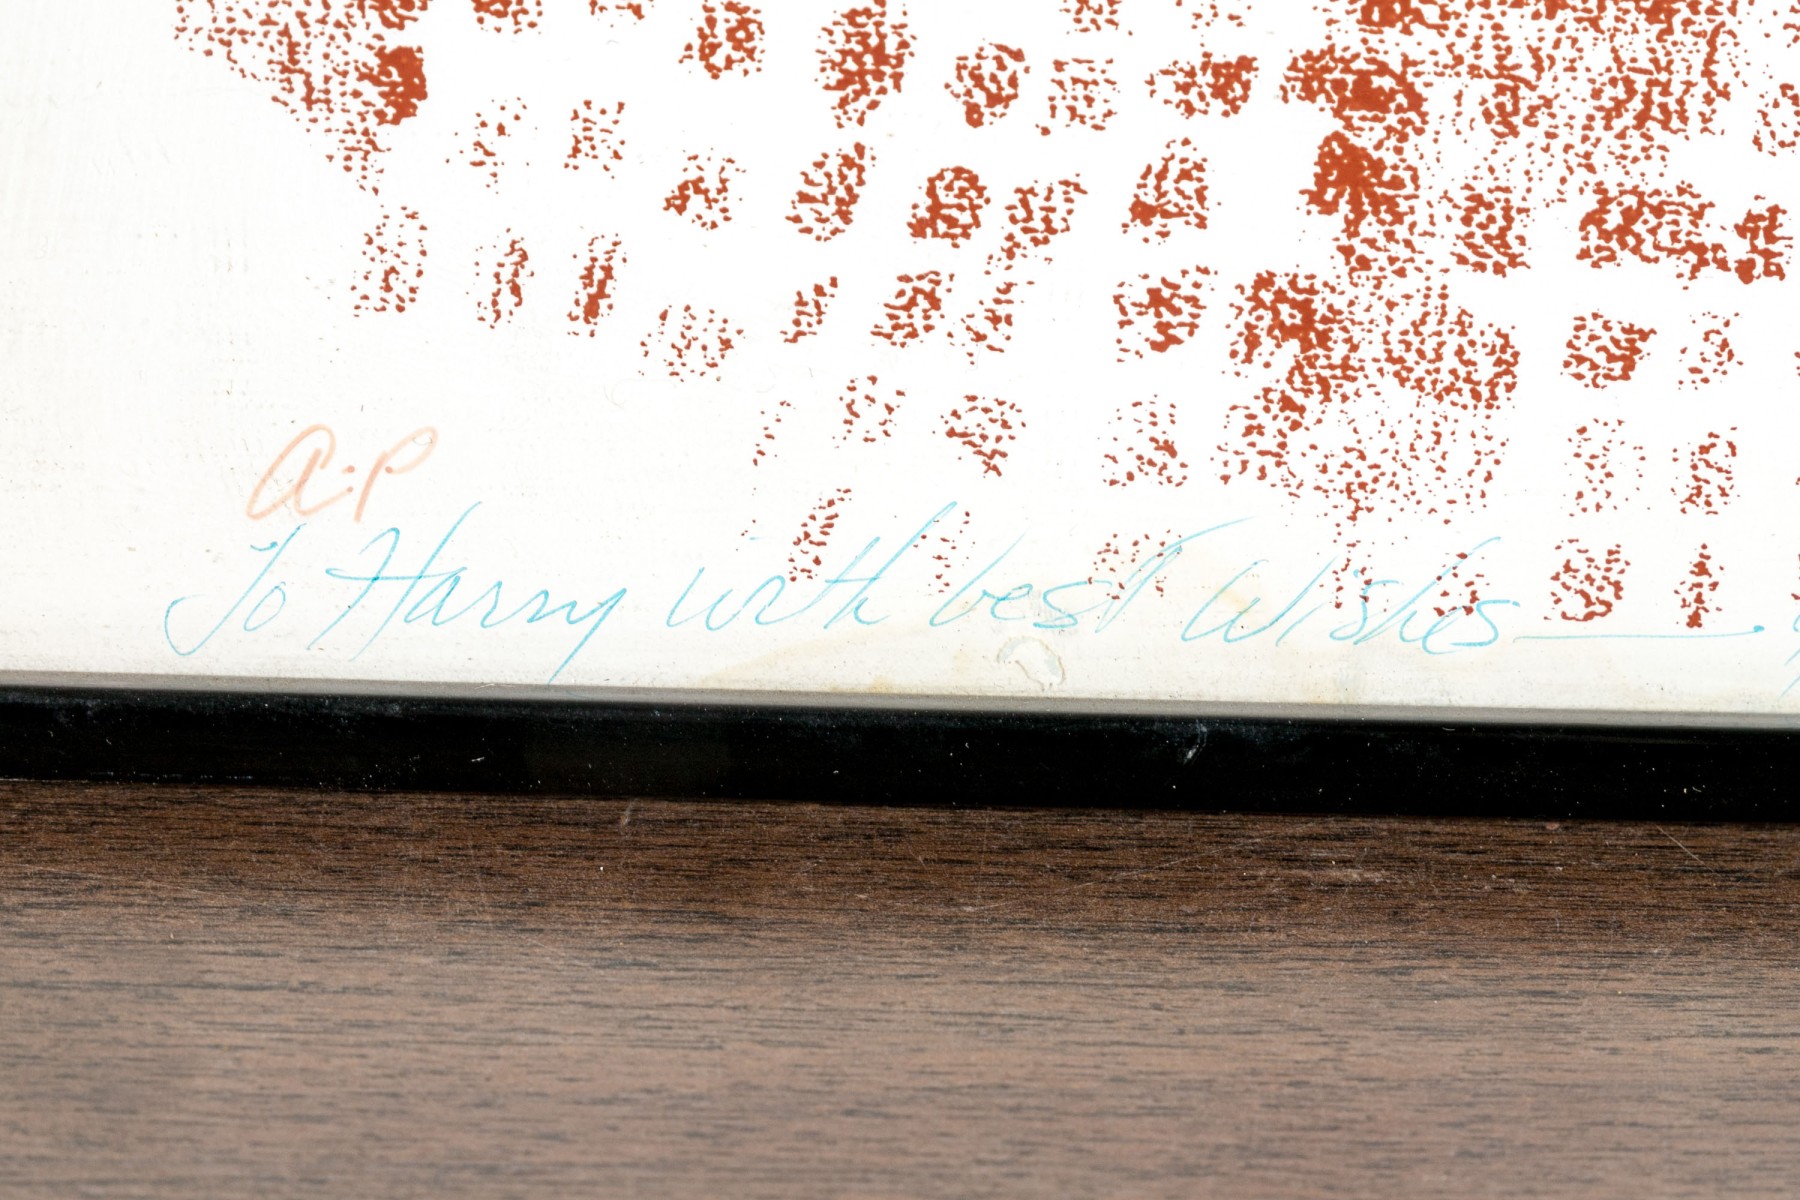 a.p
To Harry with best Wishes